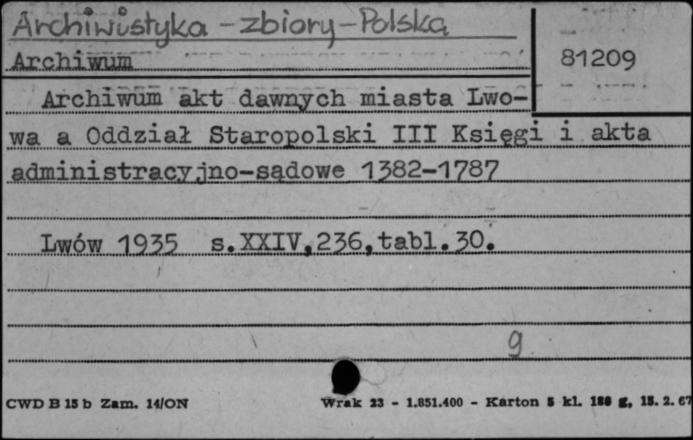 Archiwistyka - zbiory - Polska
Archiwum
81209
Archiwum akt dawnych miasta Lwo-
wa a Oddział Staropolski III Księgi i akta
administracyjno-sądowe 1382-1787
Lwów 1935 s.XXIV,236,tabl.30.
g
CWD B 15 b Zam. 14/ON Wrak 23 - 1.851.400 - Karton 5 kl. 180 g, 15. 2. 67